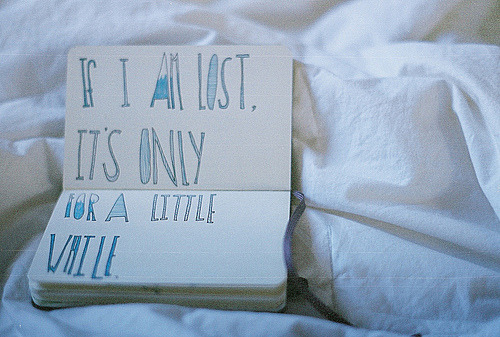 IF I AM LOST,
IT'S ONLY
FOR A LITTLE
WHILE.